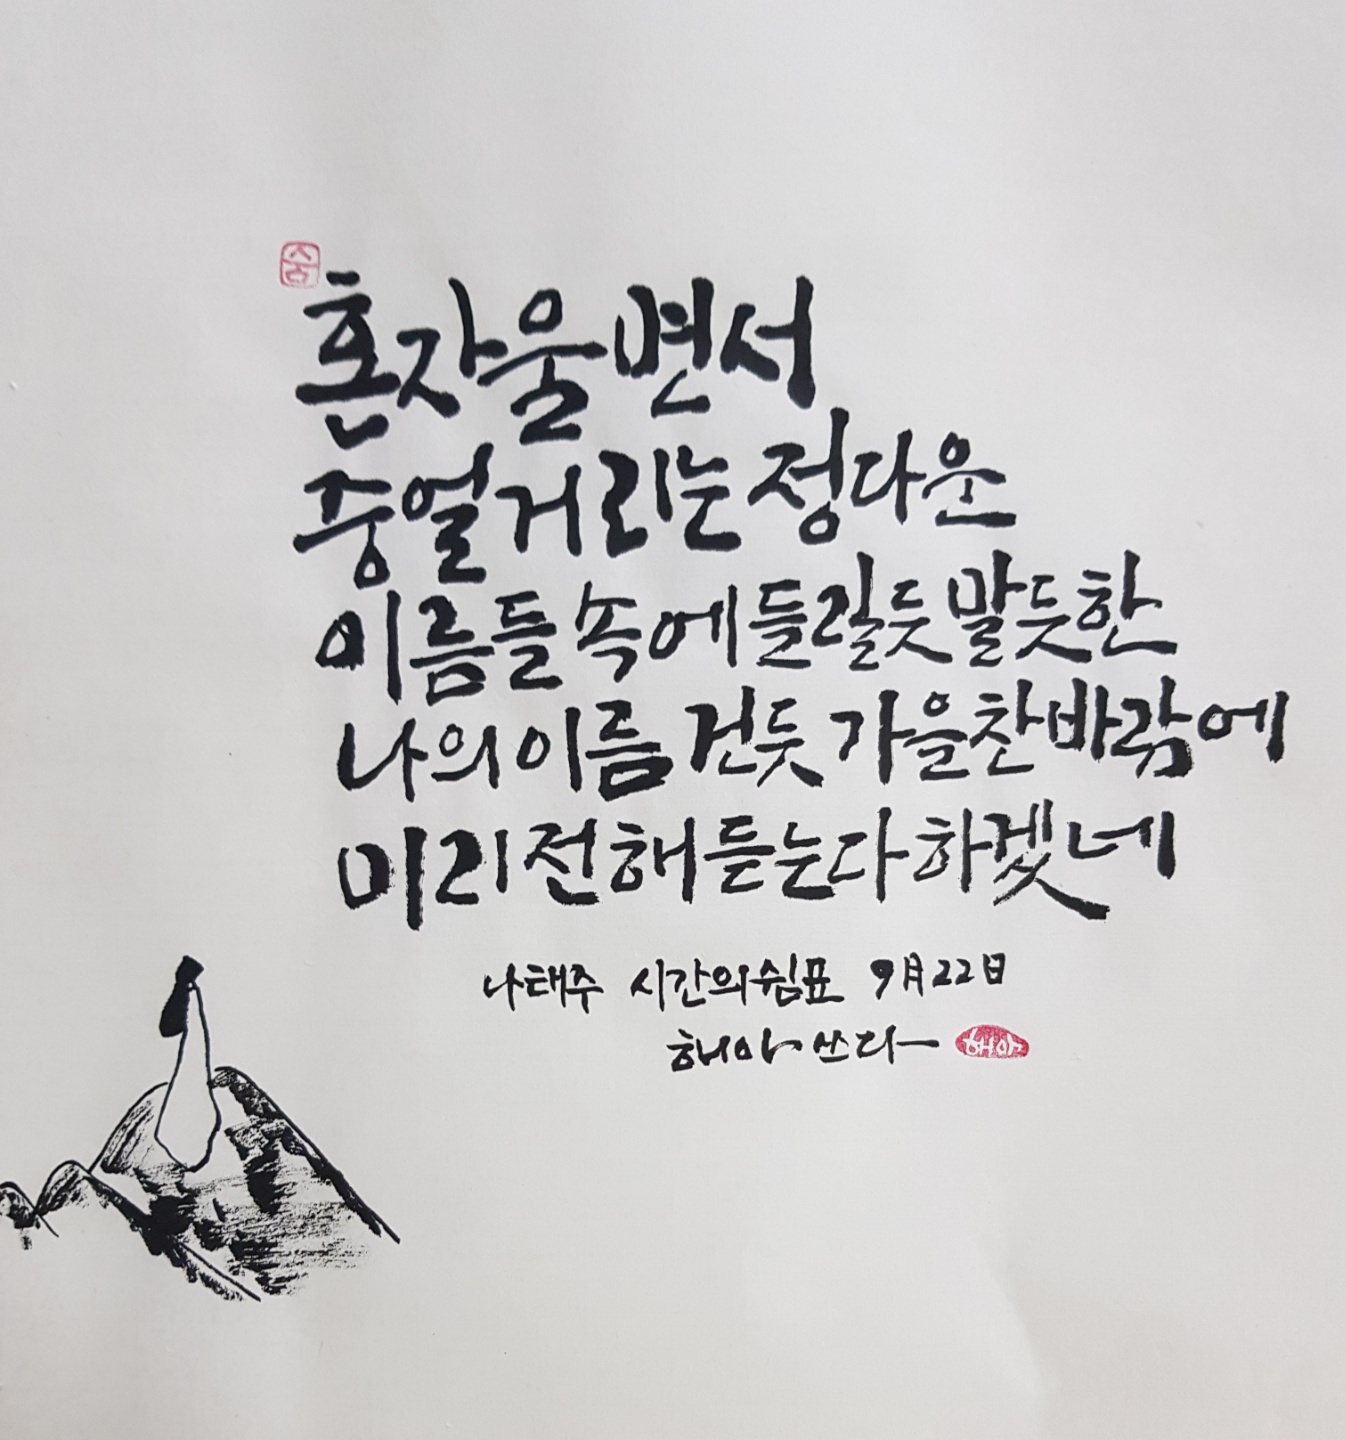 숨
혼자 울면서
중얼거리는 정다운
이름들 속에 들릴듯 말듯한
나의 이름 건듯 가을 찬바람에
미리 전해 듣는다 하겠네
나태주 시간의쉼표 9月22日
해아 쓰다
해아